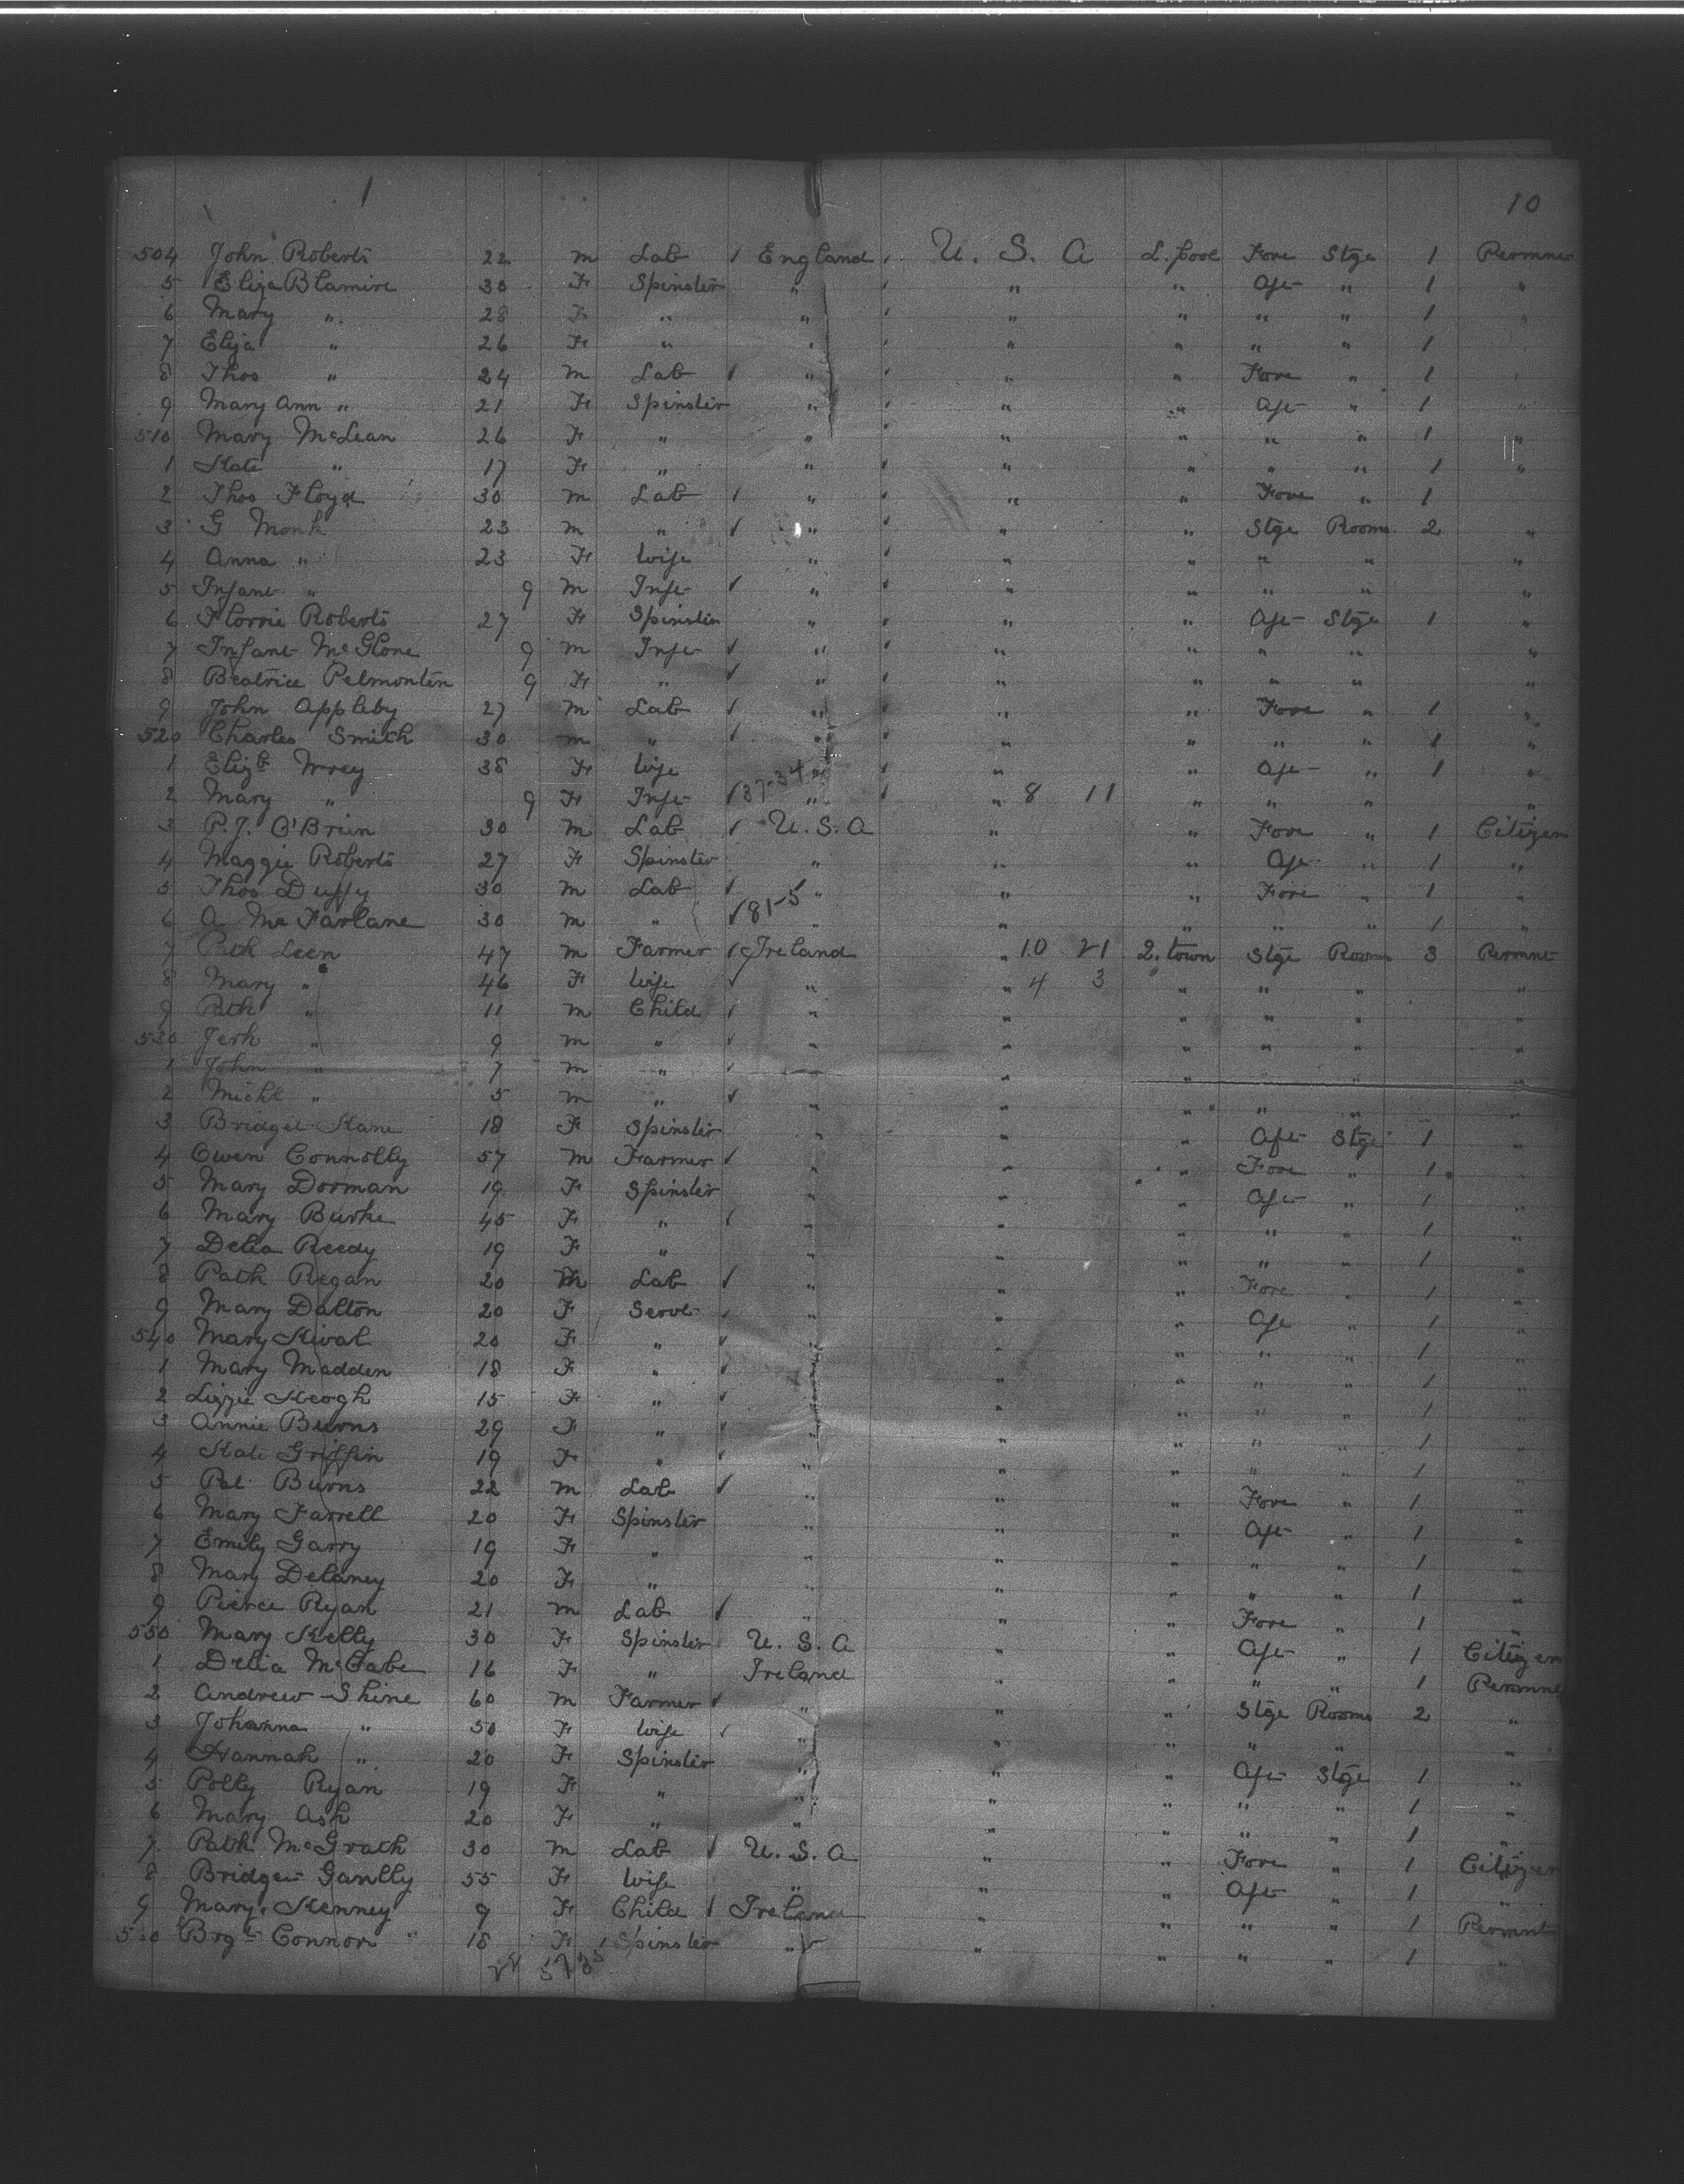 1 10
504 John Roberts 22 m Lab England U. S. A L.pool Fore Stge 1 Permne
5 Eliza Blamire 30 F Spinster " " " Aft " 1 "
6 Mary " 28 F " " " " " " 1 "
7 Eliza " 26 F " " " " " " 1
8 Thos " 24 m Lab " " " Fore " 1
9 Mary Ann " 21 F Spinster " " " Aft " 1 "
510 Mary McLean 26 F " " " " " " 1 "
1 Kate " 17 F " " " " " " 1 "
2 Thos Floyd 30 m Lab " " " Fore " 1
3 G Monk 23 m " " " " Stge Rooms 2 "
4 Anna " 23 F Wife " " " " " "
5 Infant " 9 m Inft " " " " " "
6 Florrie Roberts 27 F Spinster " " " Aft Stge 1 "
7 Infant McGlone 9 m Inft " " " " " "
8 Beatrice Pelmonten 9 F " " " " " " "
9 John Appleby 27 m Lab " " " Fore " 1 "
520 Charles Smith 30 m " " " " " " 1 "
1 Elizb 38 F Wife " " " Aft " 1 "
2 Mary " 9 F Inft 37-34 " " 8 11 " " " "
3 P.J. O'Brien 30 m Lab U.S.A " " Fore " 1 Citizen
4 Maggie Roberts 27 F Spinster " " " Aft " 1 "
5 Thos Duffy 30 m Lab " " " Fore " 1 "
6 A McFarlane 30 m " 81-5 " " " " " 1 "
7 Patk Leen 47 m Farmer Ireland " 10 21 Q.town Stge Room 3 Permnt
8 Mary " 46 F Wife " " 4 3 " " " "
9 Patk " 11 m Child " " " " " "
530 Jerh " 9 m " " " " " " "
1 John " 7 m " " " " " " "
2 Michl " 5 m " " " " " " "
3 Bridget Kane 18 F Spinster " " " Aft Stge 1 "
4 Owen Connolly 57 m Farmer " " " Fore " 1 "
5 Mary Dorman 19 F Spinster " " " Aft " 1 "
6 Mary Burke 45 F " " " " " " 1 "
7 Delia Reedy 19 F " " " " " " 1 "
8 Patk Regan 20 m Lab " " " Fore " 1 "
9 Mary Dalton 20 F Servt " " " Aft " 1 "
540 Mary Kival 20 F " " " " " " 1 "
1 Mary Madden 18 F " " " " " " 1 "
2 Lizzie Keogh 15 F " " " " " " 1 "
3 Annie Burns 29 F " " " " " " 1 "
4 Kate Griffin 19 F " " " " " " 1 "
5 Pat Burns 22 m Lab " " " Fore " 1 "
6 Mary Farrell 20 F Spinster " " " Aft " 1 "
7 Emily Garry 19 F " " " " " " 1 "
8 Mary Delaney 20 F " " " " " " 1 "
9 Pierce Ryan 21 m Lab " " " Fore " 1 "
550 Mary Kelly 30 F Spinster U. S. A " " Aft " 1 Citizen
1 Delia McCabe 16 F " Ireland " " " " 1 Permne
2 Andrew Shine 60 m Farmer " " " Stge Rooms 2 "
3 Johanna " 50 F Wife " " " " " "
4 Hannah " 20 F Spinster " " " Aft Stge 1 "
5 Polly Ryan 19 F " " " " " " 1 "
6 Mary Ash 20 F " " " " " " 1 "
7 Patk McGrath 30 m Lab U. S. A " " Fore " 1 Citizen
8 Bridget Gantly 55 F Wife " " " Aft " 1 "
9 Mary Kenney 9 F Child Ireland " " " " 1 Permnt
Brgt Connor 18 F Spinster " " " " " 1 "